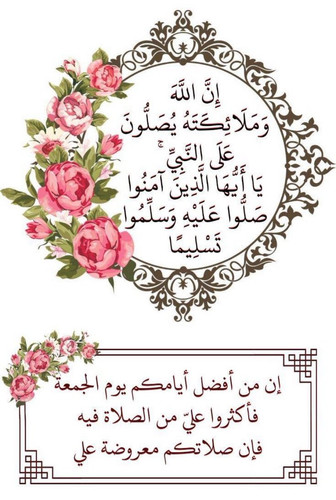 إِنَّ اللَّهَ
وَمَلَائِكَتَهُ يُصَلُّونَ
عَلَى النَّبِيِّ ۚ
يَا أَيُّهَا الَّذِينَ آمَنُوا
صَلُّوا عَلَيْهِ وَسَلِّمُوا
تَسْلِيمًا
إن من أفضل أيامكم يوم الجمعة
فأكثروا عليّ من الصلاة فيه
فإن صلاتكم معروضة علي